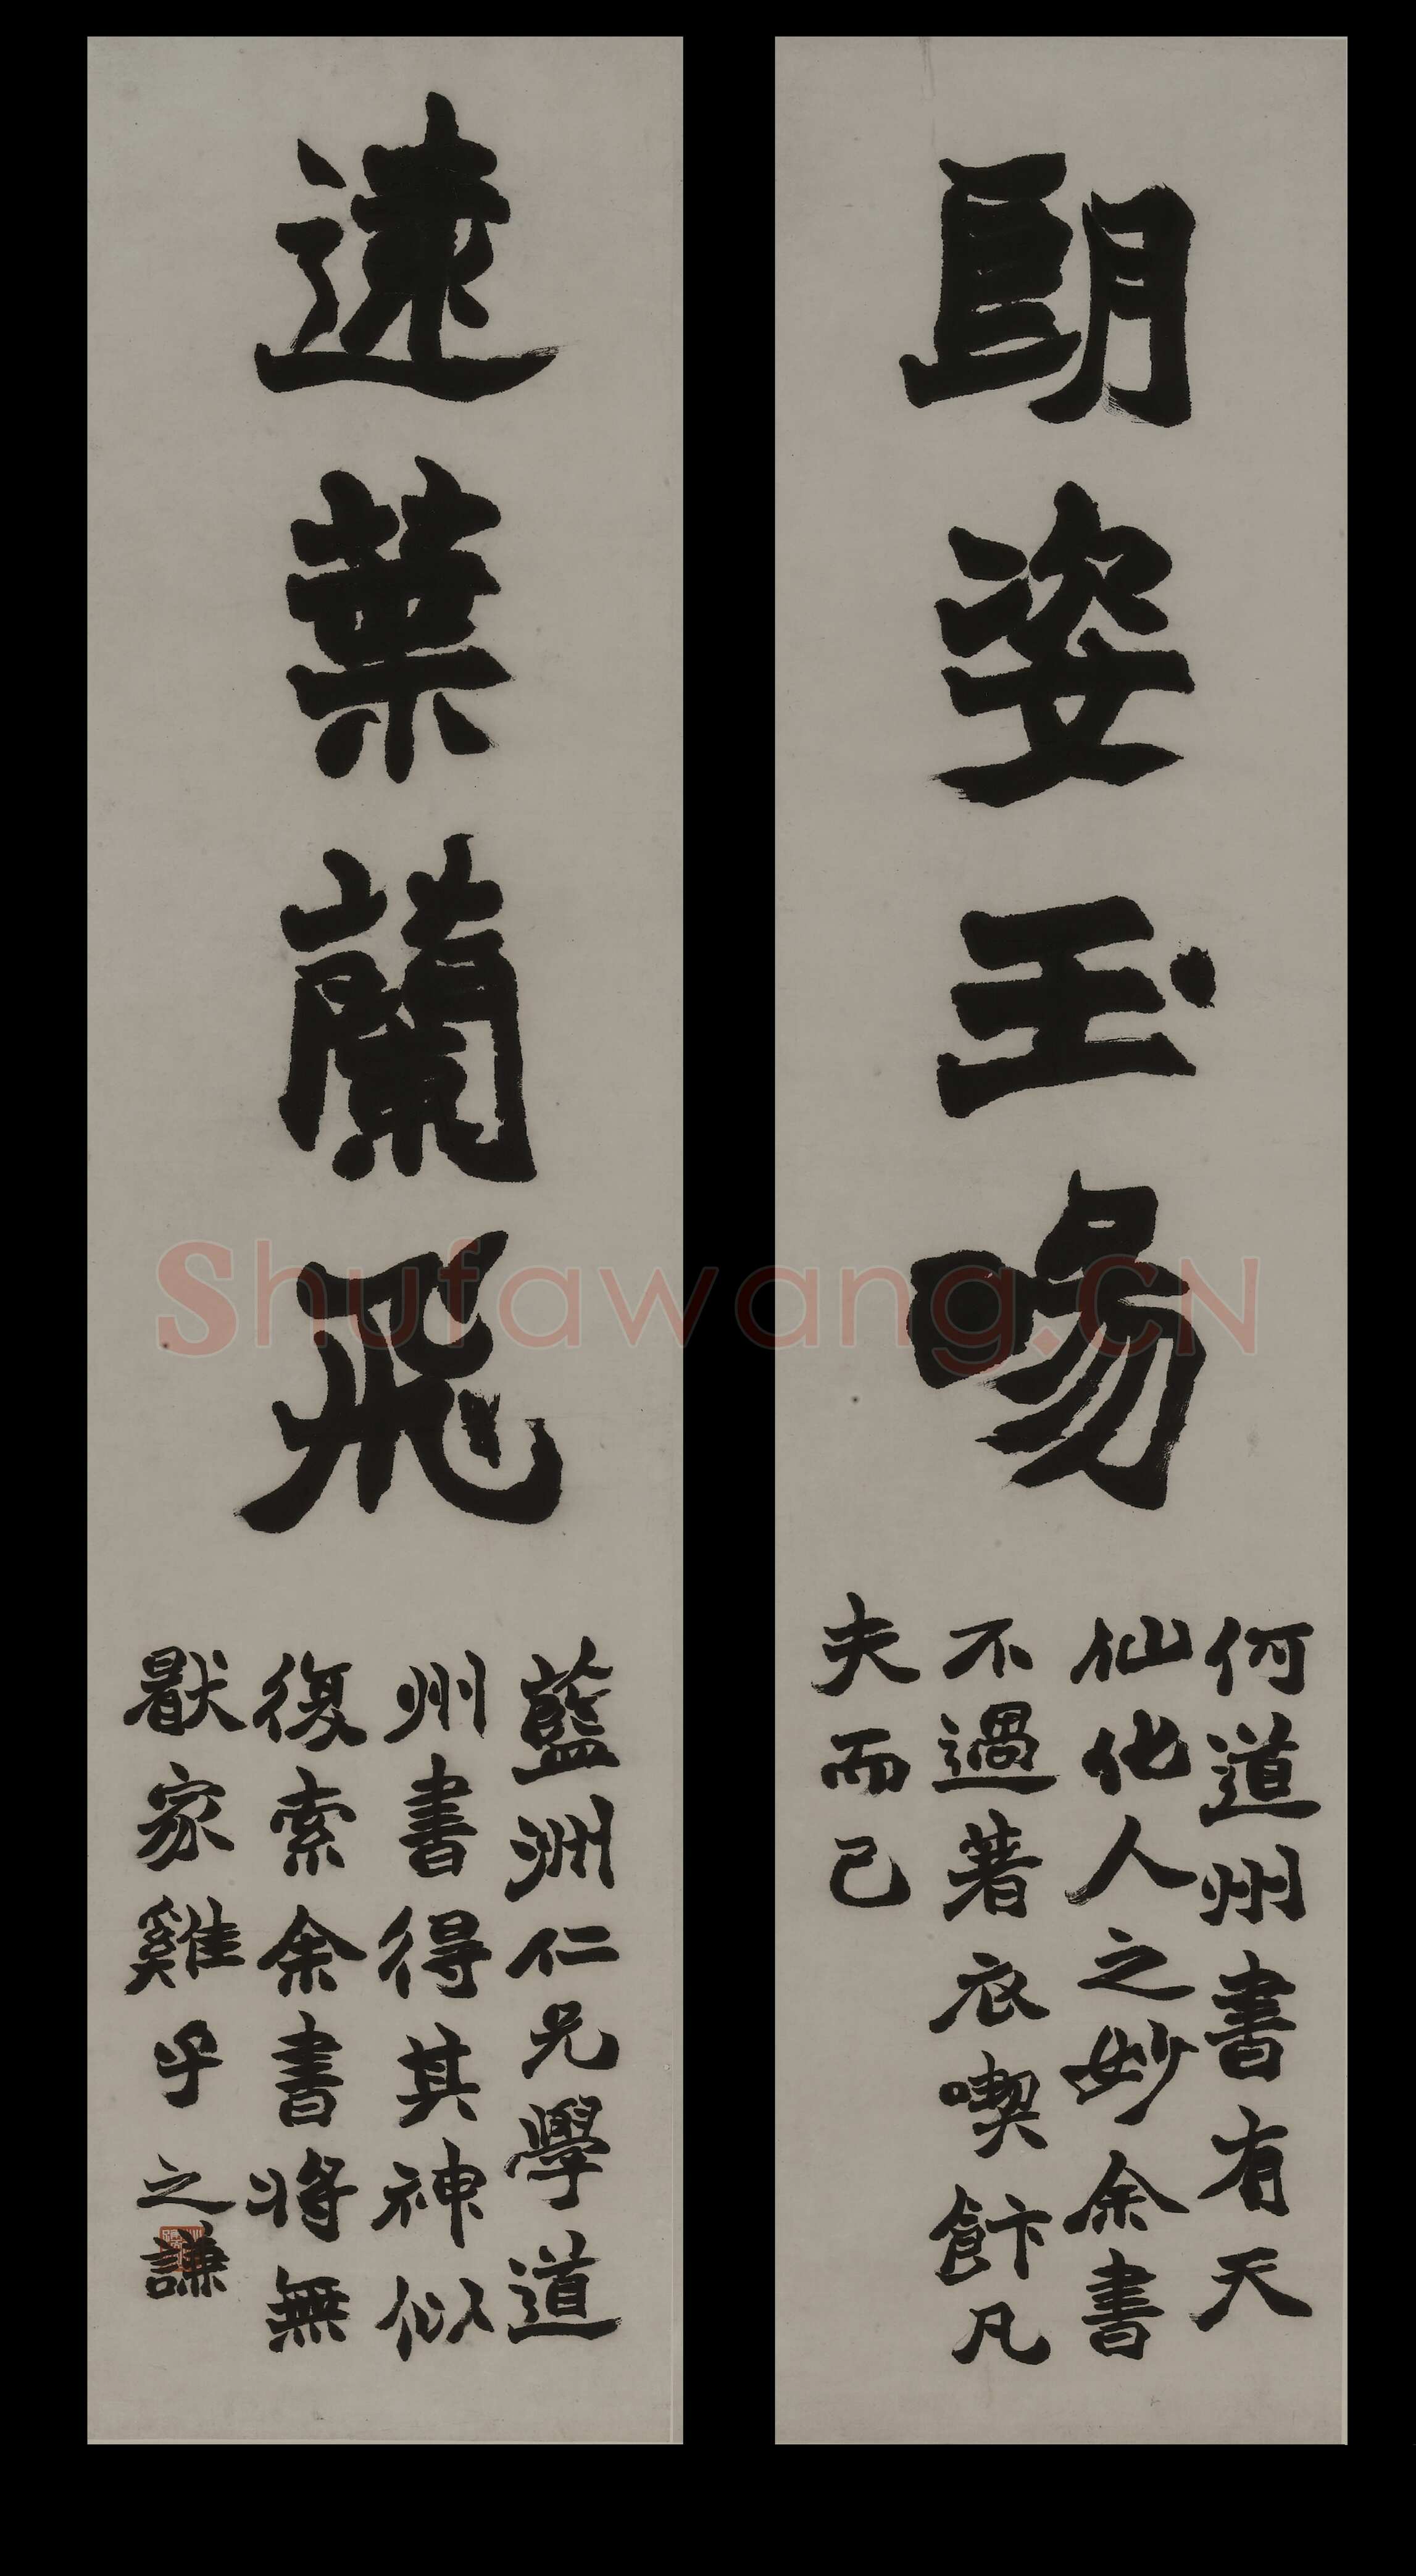 朗姿玉暢
何道州書有天
仙化人之妙余書
不過著衣喫飰凡
夫而已
遠葉蘭飛
藍洲仁兄學道
州書得其神似
復索余書將無
猒家雞乎之謙
Shufawang.CN